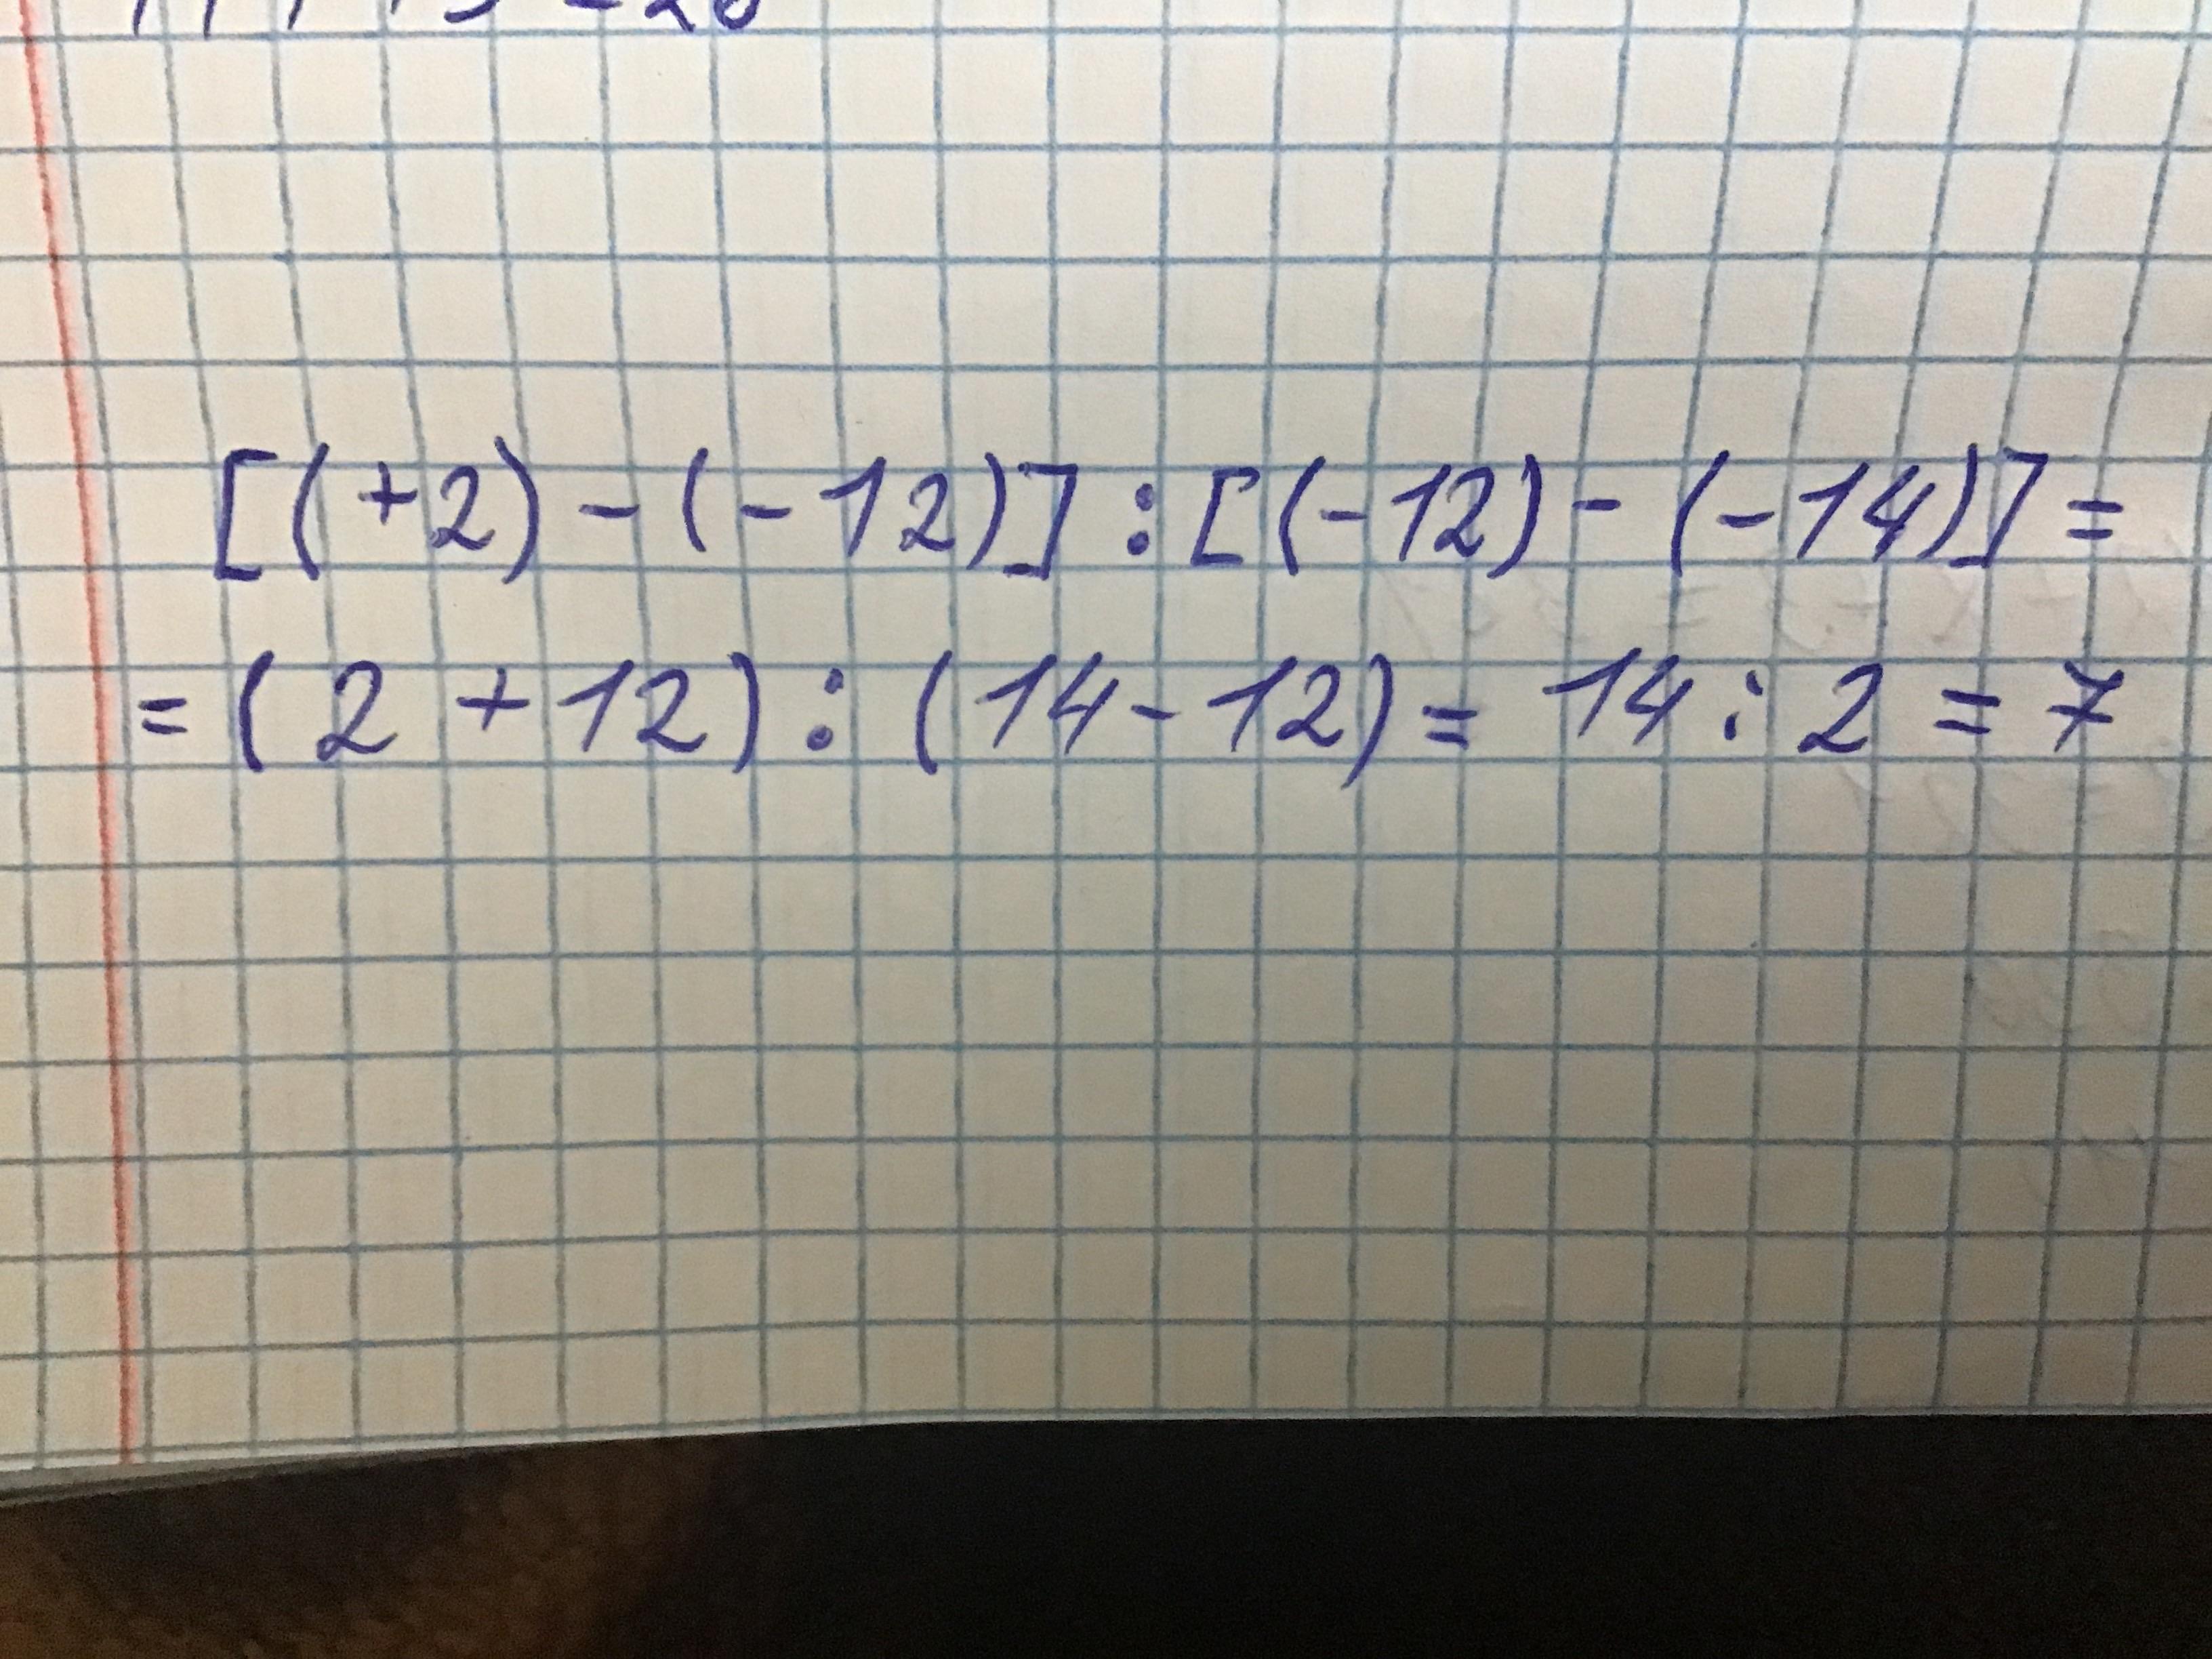 [(+2)-(-12)]:[(-12)-(-14)]=
=(2+12):(14-12)=14:2=7